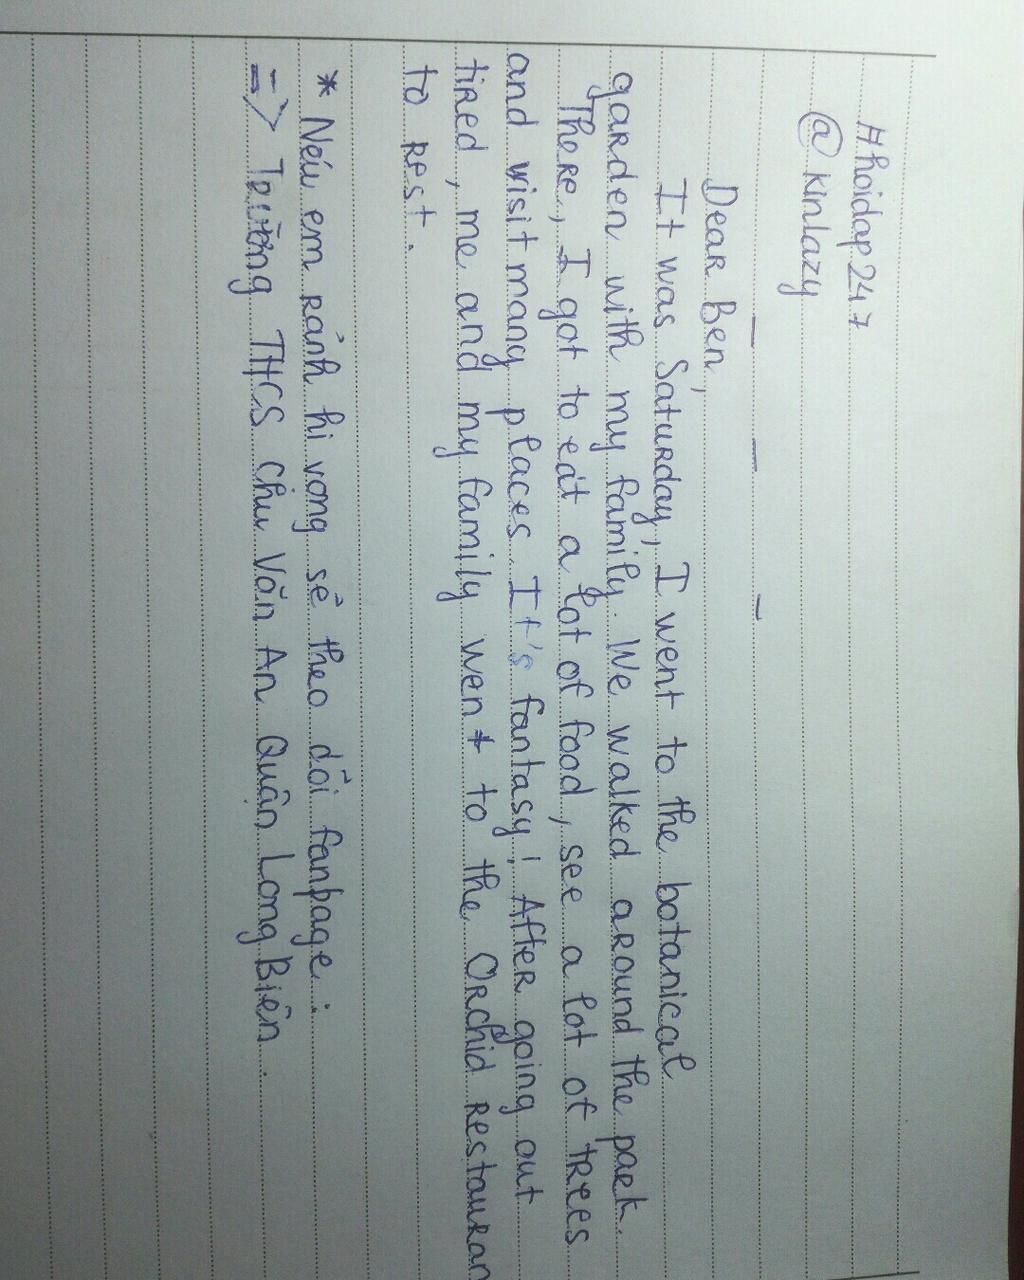 #hoidap247
@kinlazy
Dear Ben,
It was Saturday, I went to the botanical
garden with my family. We walked around the park.
There, I got to eat a lot of food, see a lot of trees
and visit many places. It's fantasy! After going out
tired, me and my family went to the Orchid restauran
to rest.
* Nếu em rảnh hi vọng sẽ theo dõi fanpage:
=> Trường THCS Chu Văn An Quận Long Biên.